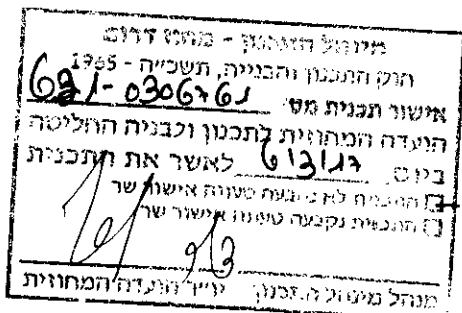 מינהל התכנון - מחוז דרום
חוק התכנון והבנייה, תשכ"ה - 1965
אישור תכנית מס' 621-0306761
הועדה המחוזית לתכנון ולבניה החליטה
ביום 6/3/17 לאשר את התכנית
התכנית לא נקבעה טעונה אישור שר
התכנית נקבעה טעונה אישור שר
מנהל מינהל התכנון יו"ר הועדה המחוזית